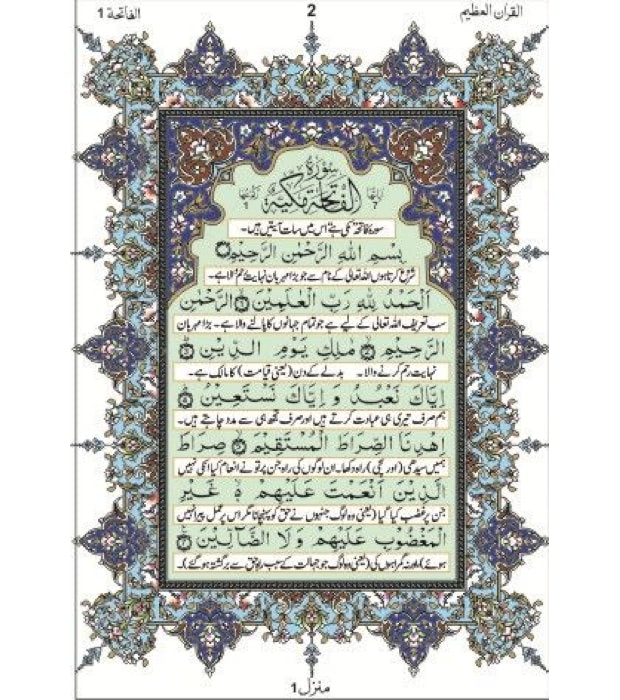 القرآن العظيم
2
الفاتحة 1
سورة
الفاتحة مكية
سورۂ فاتحہ مکی ہے اس میں سات آیتیں ہیں۔
بِسْمِ اللهِ الرَّحْمٰنِ الرَّحِيْمِ
شروع کرتا ہوں اللہ تعالیٰ کے نام سے جو بڑا مہربان نہایت رحم والا ہے۔
اَلْحَمْدُ لِلّٰهِ رَبِّ الْعٰلَمِيْنَ ۝ الرَّحْمٰنِ
سب تعریف اللہ تعالیٰ کے لیے ہے جو تمام جہانوں کا پالنے والا ہے۔ بڑا مہربان
الرَّحِيْمِ ۝ مٰلِكِ يَوْمِ الدِّيْنِ ۝
نہایت رحم کرنے والا۔ بدلے کے دن (یعنی قیامت) کا مالک ہے۔
اِيَّاكَ نَعْبُدُ وَ اِيَّاكَ نَسْتَعِيْنُ ۝
ہم صرف تیری ہی عبادت کرتے ہیں اور صرف تجھ ہی سے مدد چاہتے ہیں۔
اِهْدِنَا الصِّرَاطَ الْمُسْتَقِيْمَ ۝ صِرَاطَ
ہمیں سیدھی (اور سچی) راہ دکھا۔ ان لوگوں کی راہ جن پر تو نے انعام کیا انکی نہیں
الَّذِيْنَ اَنْعَمْتَ عَلَيْهِمْ ۙ غَيْرِ
جن پر غضب کیا گیا (یعنی وہ لوگ جنہوں نے حق کو پہچانا مگر اس پر عمل پیرا نہیں
الْمَغْضُوْبِ عَلَيْهِمْ وَلَا الضَّآلِّيْنَ ۝
ہوئے) اور نہ گمراہوں کی (یعنی وہ لوگ جو جہالت کے سبب راہ حق سے برگشتہ ہو گئے)۔
منزل 1